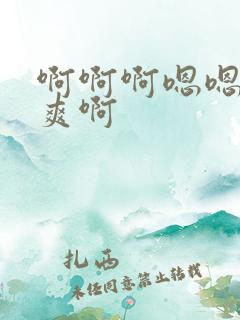 啊啊啊嗯嗯
爽啊
扎西
未经同意禁止转载